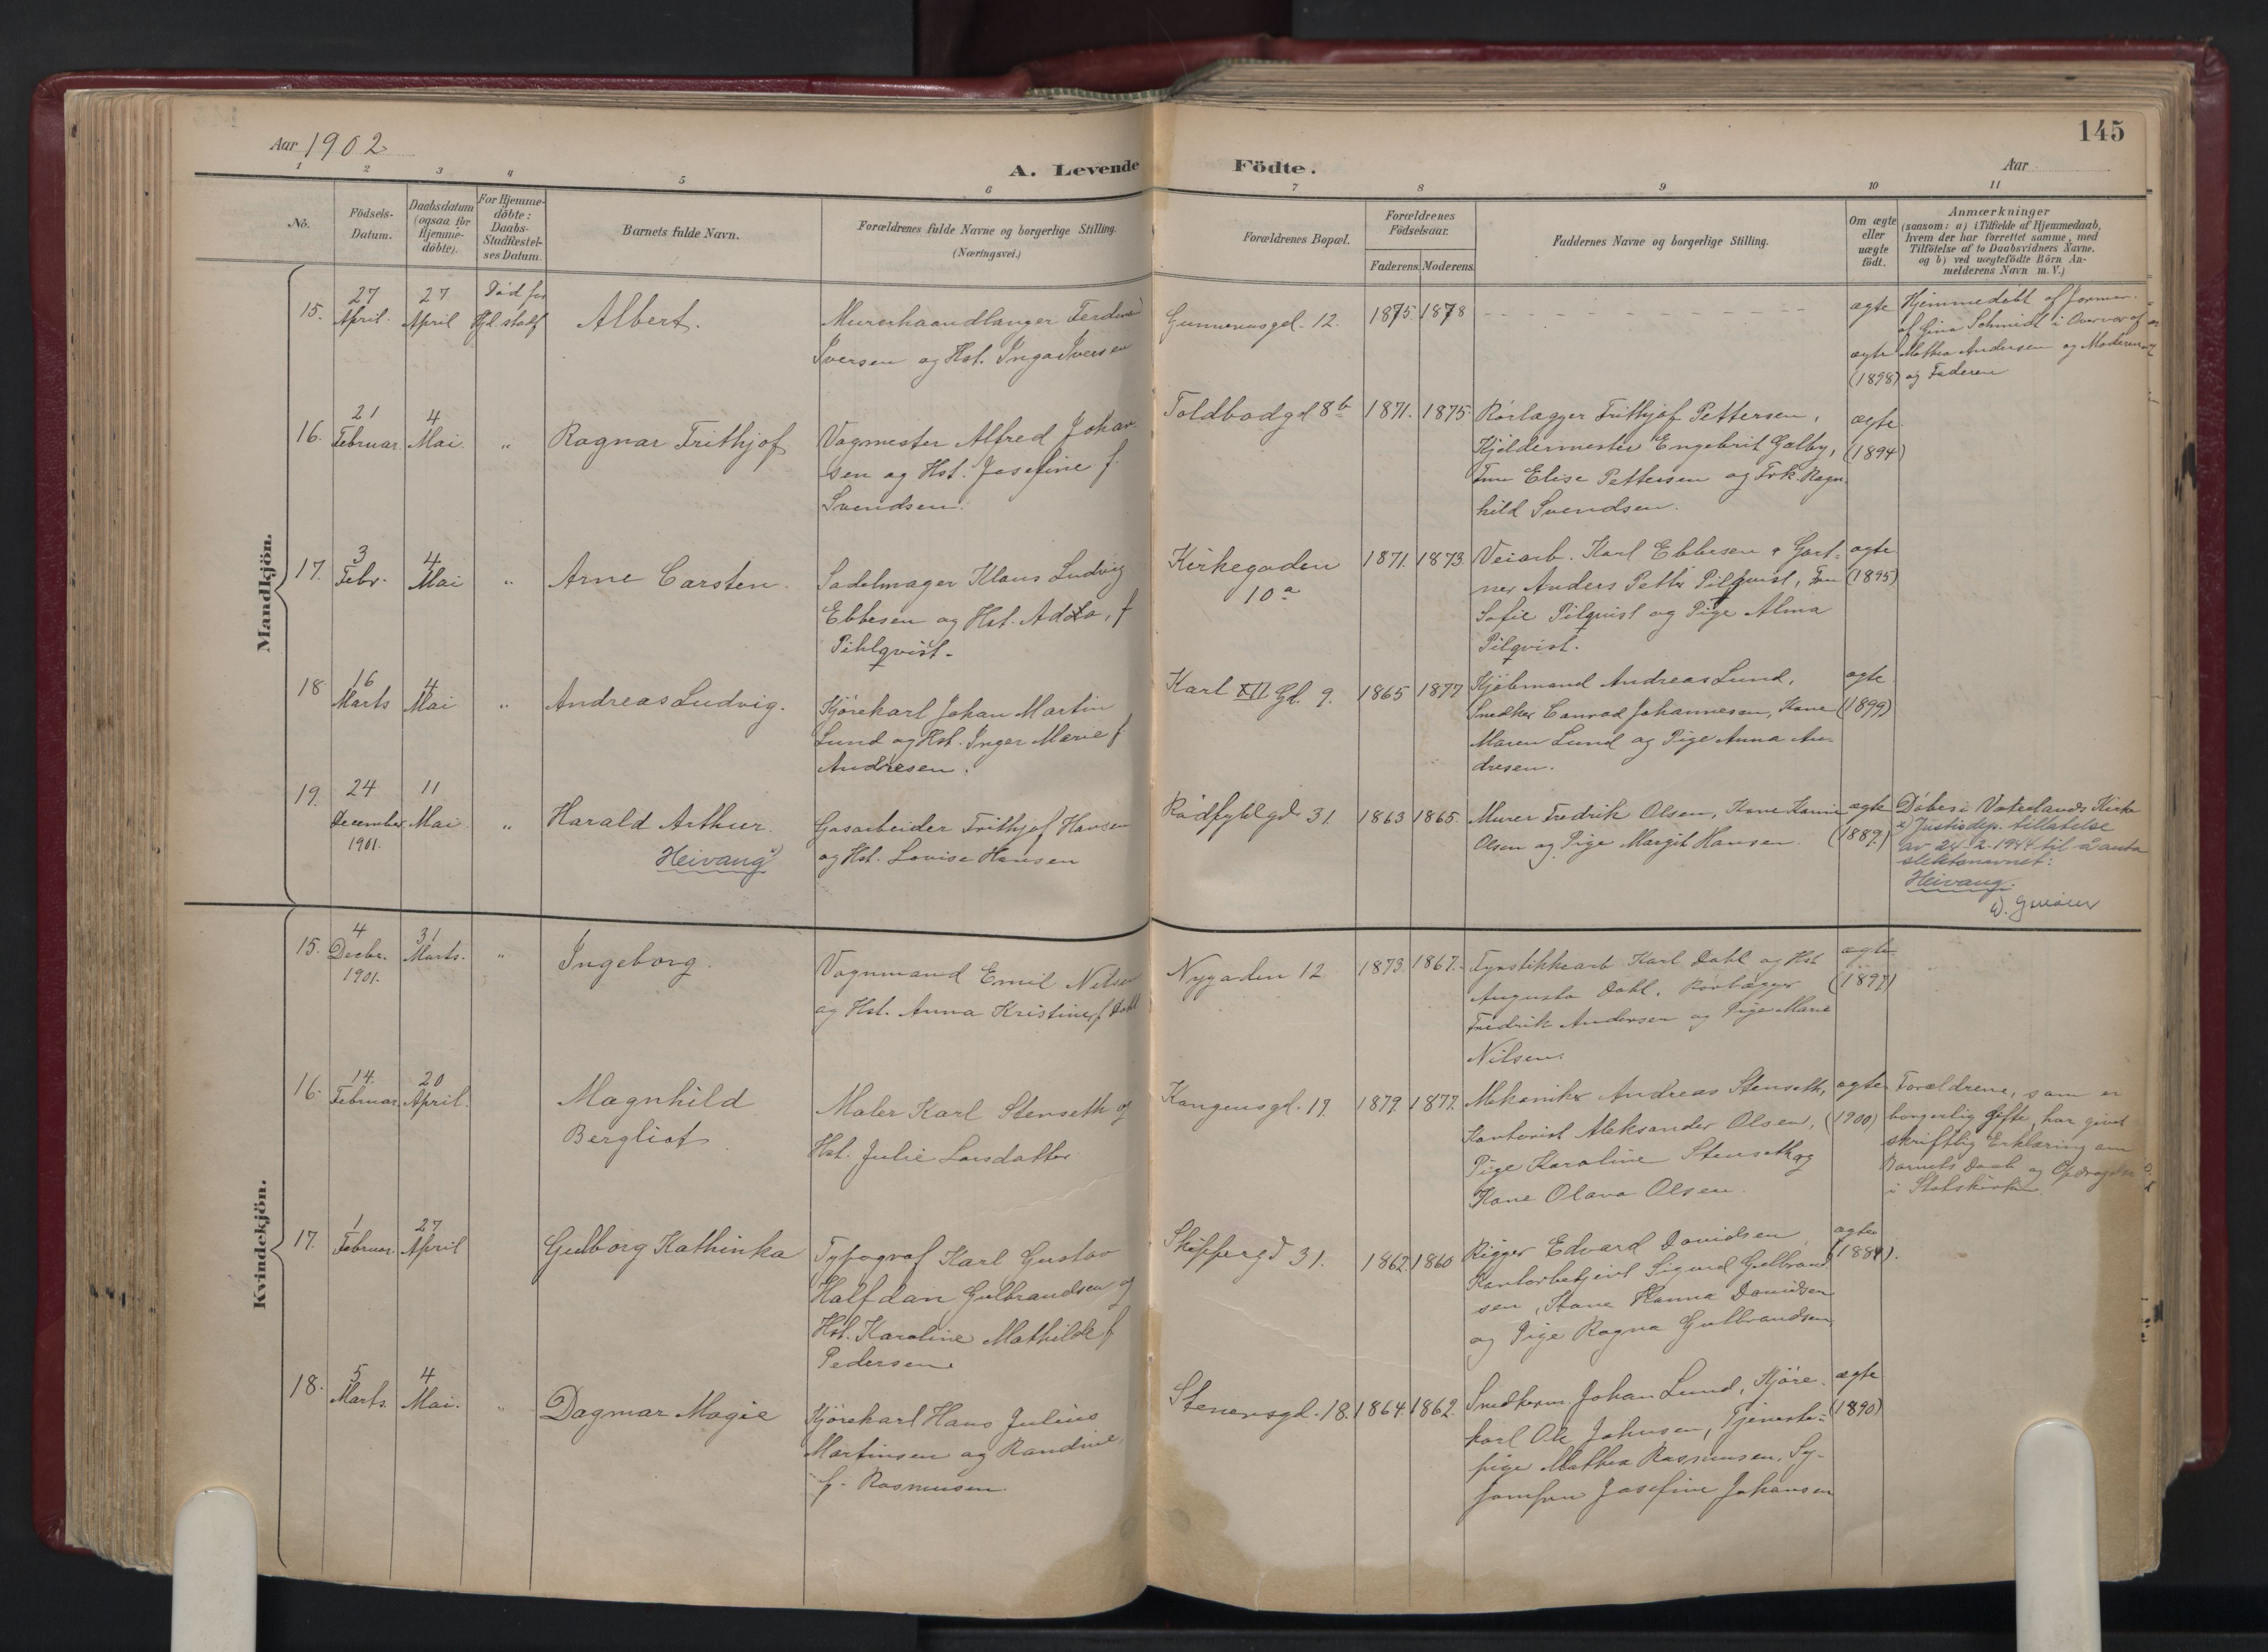 145
Aar 1902
Aar
A. Levende Födte.
1 2 3 4 5 6 7 8 9 10 11
No.
Födsels-
Datum.
Daabsdatum
(ogsaa for
Hjemme-
döbte).
For Hjemme-
döbte:
Daabs-
Stadfestel-
ses Datum.
Barnets fulde Navn.
Forældrenes fulde Navne og borgerlige Stilling.
(Næringsvei.)
Forældrenes Bopæl.
Forældrenes
Födselsaar.
Faderens. Moderens.
Faddernes Navne og borgerlige Stilling.
Om ægte
eller
uægte
födt.
Anmærkninger
(saasom: a) i Tilfælde af Hjemmedaab,
hvem der har forrettet samme, med
Tilföielse af to Daabsvidners Navne.
og b) ved uægtefödte Börn An-
melderens Navn m. V.)
Mandkjön.
15.
27
April.
27
April
Död før
Albert.
Murerhaandlanger Ferdinand
Iversen og Hst. Inga Iversen
Gunnerusgd. 12.
1875. 1878
ægte
ægte
(1898)
Hjemmedöbt af jormor.
af Gina Schmidt i Overvær af
Mathea Andersen og Moderen
og Faderen
16.
21
Februar.
4
Mai.
"
Ragnar Frithjof
Vognmester Alfred Johan-
sen og Hst. Josefine f.
Svendsen.
Toldbodgd 8b
1871. 1875
Rörlægger Frithjof Pettersen,
Kjeldermester Engebrit Galby,
Fru Elise Pettersen og Frk. Ragn-
hild Svendsen.
ægte.
(1894)
17.
3
Febr.
4
Mai
"
Arne Carsten.
Sadelmager Klaus Ludvig
Ebbesen og Hst. Adda, f
Pihlqvist.
Kirkegaden
10a
1871. 1873.
Veiarb. Karl Ebbesen, Gart-
ner Anders Petter Pilqvist, Fru
Sofie Pilqvist og Pige Alma
Pilqvist.
ægte
(1895)
18
16
Marts
4
Mai
"
Andreas Ludvig.
Kjörekarl Johan Martin
Lund og Hst. Inger Marie f.
Andresen.
Karl XII Gd. 9.
1865 1877
Kjöbmand Andreas Lund,
Snedker Conrad Johannesen, Kone
Maren Lund og Pige Anna An-
dresen.
ægte
(1899)
19.
24
December
1901.
11
Mai
"
Harald Arthur.
Heivang x)
Gasarbeider Frithjof Hansen
og Hst. Lovise Hansen
Rödfyldgd 31.
1863 1865.
Murer Fredrik Olsen, Kone
Olsen og Pige Margit Hansen.
ægte
(1889)
Döbt i Vaterlands Kirke
x) Justisdep. tillatelse
av 24-2-1944 til å anta
slektsnavnet:
Heivang.
Kvindekjön.
15.
4
Decbr.
1901.
31
Marts.
"
Ingeborg.
Vognmand Emil Nilsen
og Hst. Anna Kristine f. Dahl
Nygaden 12
1873. 1867.
Fyrstikkearb Karl Dahl og Hst
Augusta Dahl, Rörlægger
Fredrik Andersen og Pige Marie
Nilsen.
ægte
(1897)
16.
14.
Februar.
20
April.
Magnhild
Bergliot.
Maler Karl Stenseth og
Hst. Julie Larsdatter
Kongensgd. 17.
1879. 1877.
Mekaniker Andreas Stenseth,
Kontorist Aleksander Olsen,
Pige Karoline Stenseth og
Kone Olava Olsen.
ægte
(1900)
Forældrene, som er
borgerlig gifte, har givet
skriftlig Erklæring om
Barnets Daab og Opdragelse
i Statskirken.
17.
1
Februar.
27
April
Gudborg Kathinka
Typograf Karl Gustav
Halfdan Gulbrandsen og
Hst. Karoline Mathilde f
Pedersen.
Skippergd 31.
1862. 1860
Rigger Edvard Davidsen
Kontorbetjent Sigurd Gulbrand-
sen, Kone Hanna Davidsen
og Pige Ragna Gulbrandsen.
ægte
(1884).
18.
5
Marts.
4
Mai.
"
Dagmar Magie
Kjörekarl Hans Julius
Martinsen og Randine
f. Rasmusen.
Stenersgd. 18.
1864. 1862.
Snedkersv. Johan Lund, Kjöre-
karl Ole Johnsen, Tjeneste-
pige Mathea Rasmusen, Sy-
jomfru Josefine Johansen
ægte
(1890)